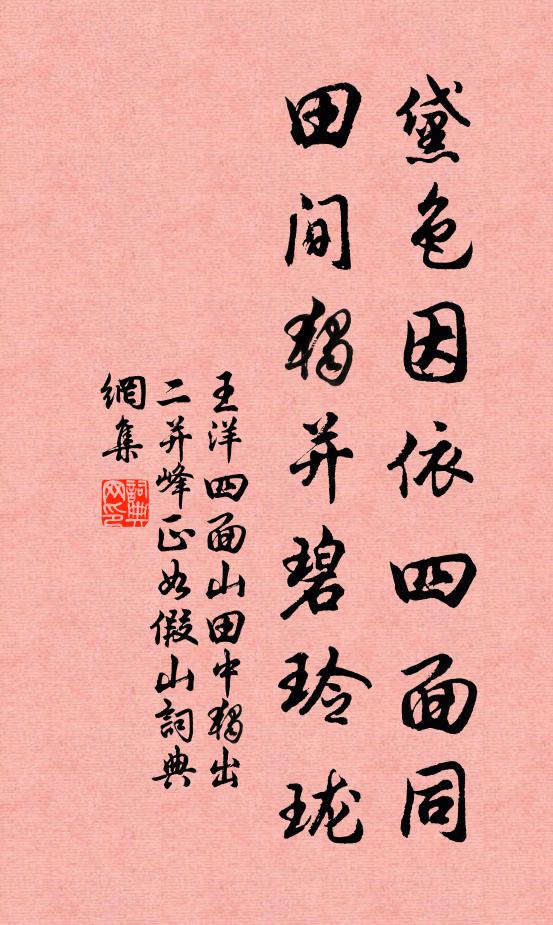 黛色因依四面同
田间独并碧玲珑
王洋四面山田中独出
二并峰正如假山詞典
網集
詞典網印